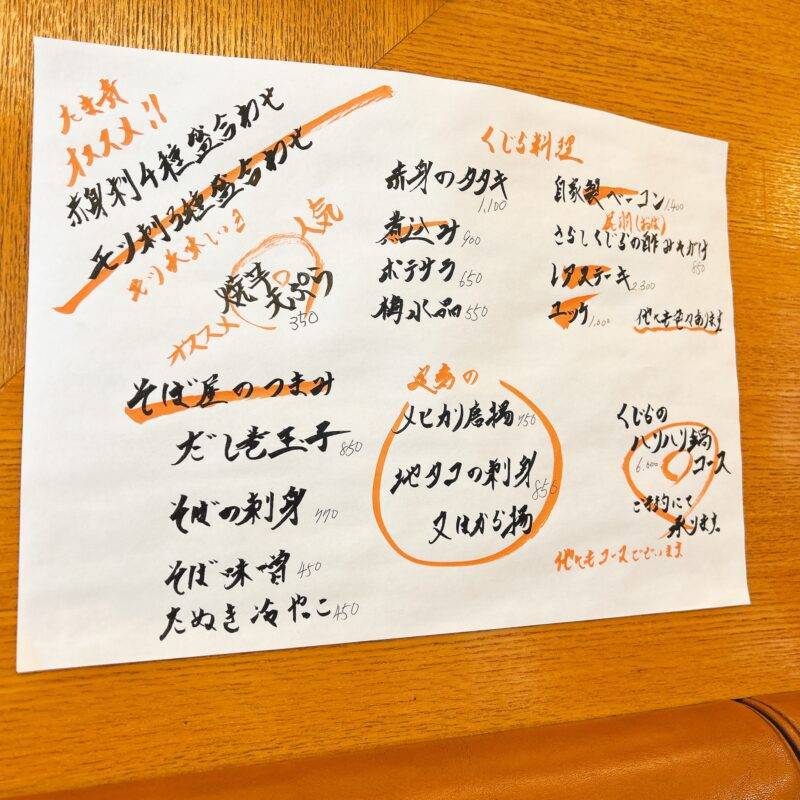 オススメ!!
赤身刺4種盛合わせ
モツ刺3種盛合わせ
人気
焼芋
天ぷら
350
オススメ
くじら料理
赤身のタタキ
1,100
煮込み 900
ポテサラ 650
梅水晶 550
自家製ベーコン 1,400
尾羽(おば)
さらしくじらの酢みそがけ
850
レタステーキ 2,300
ユッケ 1,000
他にも色々あります
そば屋のつまみ
だし巻玉子 850
そばの刺身 770
そば味噌 450
たぬき冷やっこ 450
メヒカリ唐揚 750
地タコの刺身
850
又はから揚
くじらの
ハリハリ鍋
6,000 コース
ご予約にて
承ります。
他にもコースございます